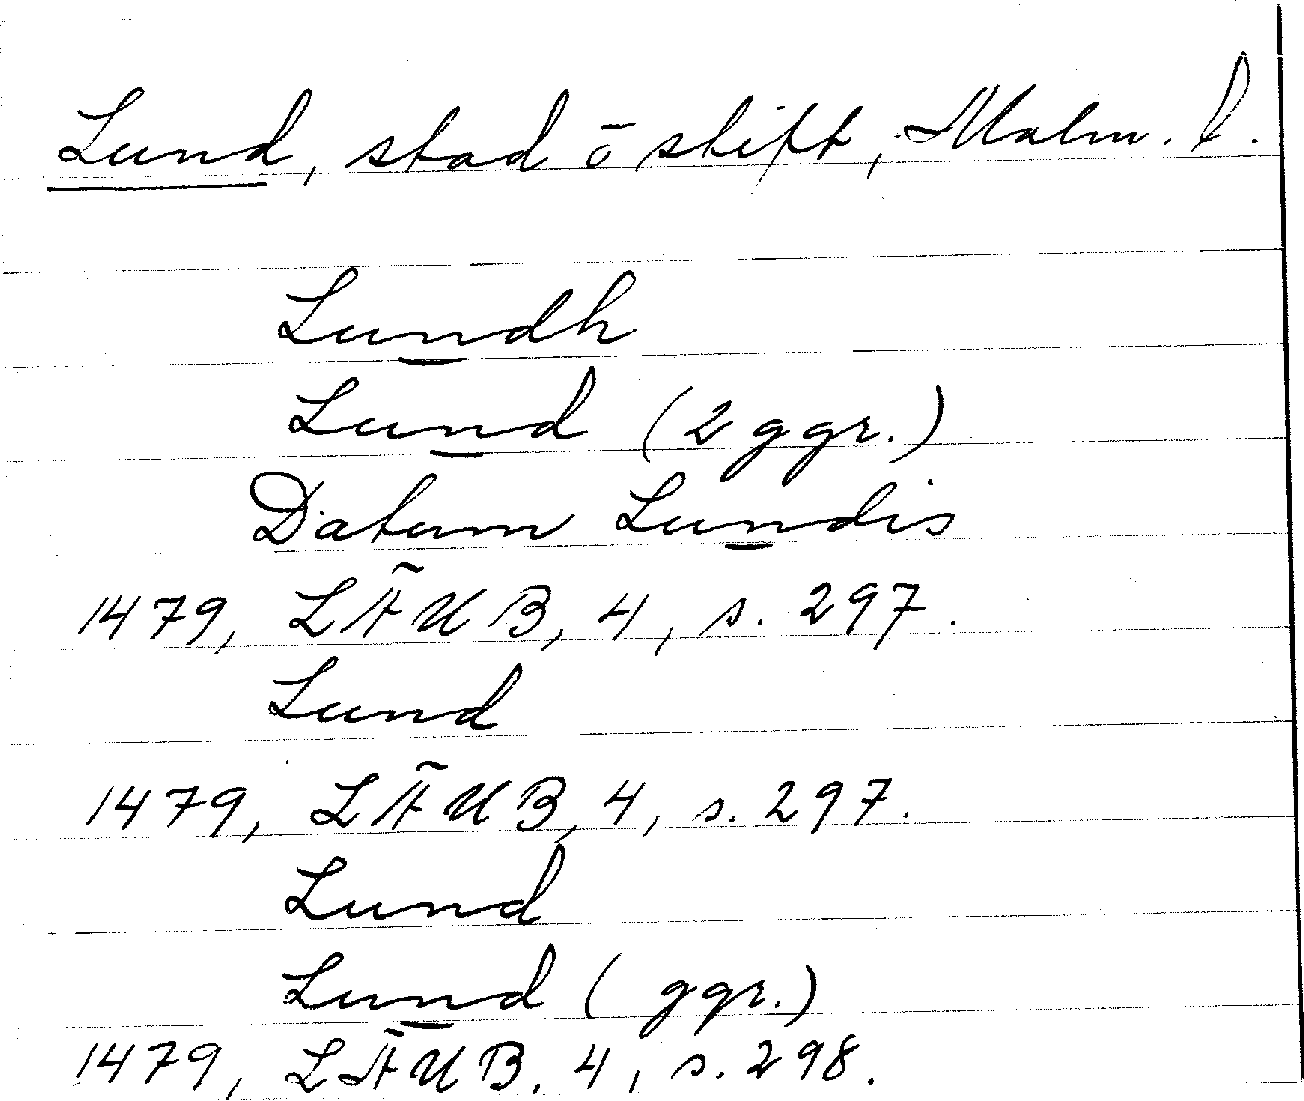 Lund, stad o stift, Malm. l.
Lundh
Lund (2 ggr.)
Datum Lundis
1479, LÄUB, 4, s. 297.
Lund
1479, LÄUB, 4, s. 297.
Lund
Lund ( ggr.)
1479, LÄUB. 4, s. 298.